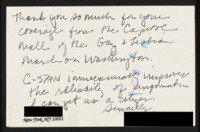 Thank you so much for your
coverage from the Capitol
Mall of the Gay & Lesbian
March on Washington.
C-SPAN immeasurably improves
the reliability of information
I can get as a citizen
Sincerely